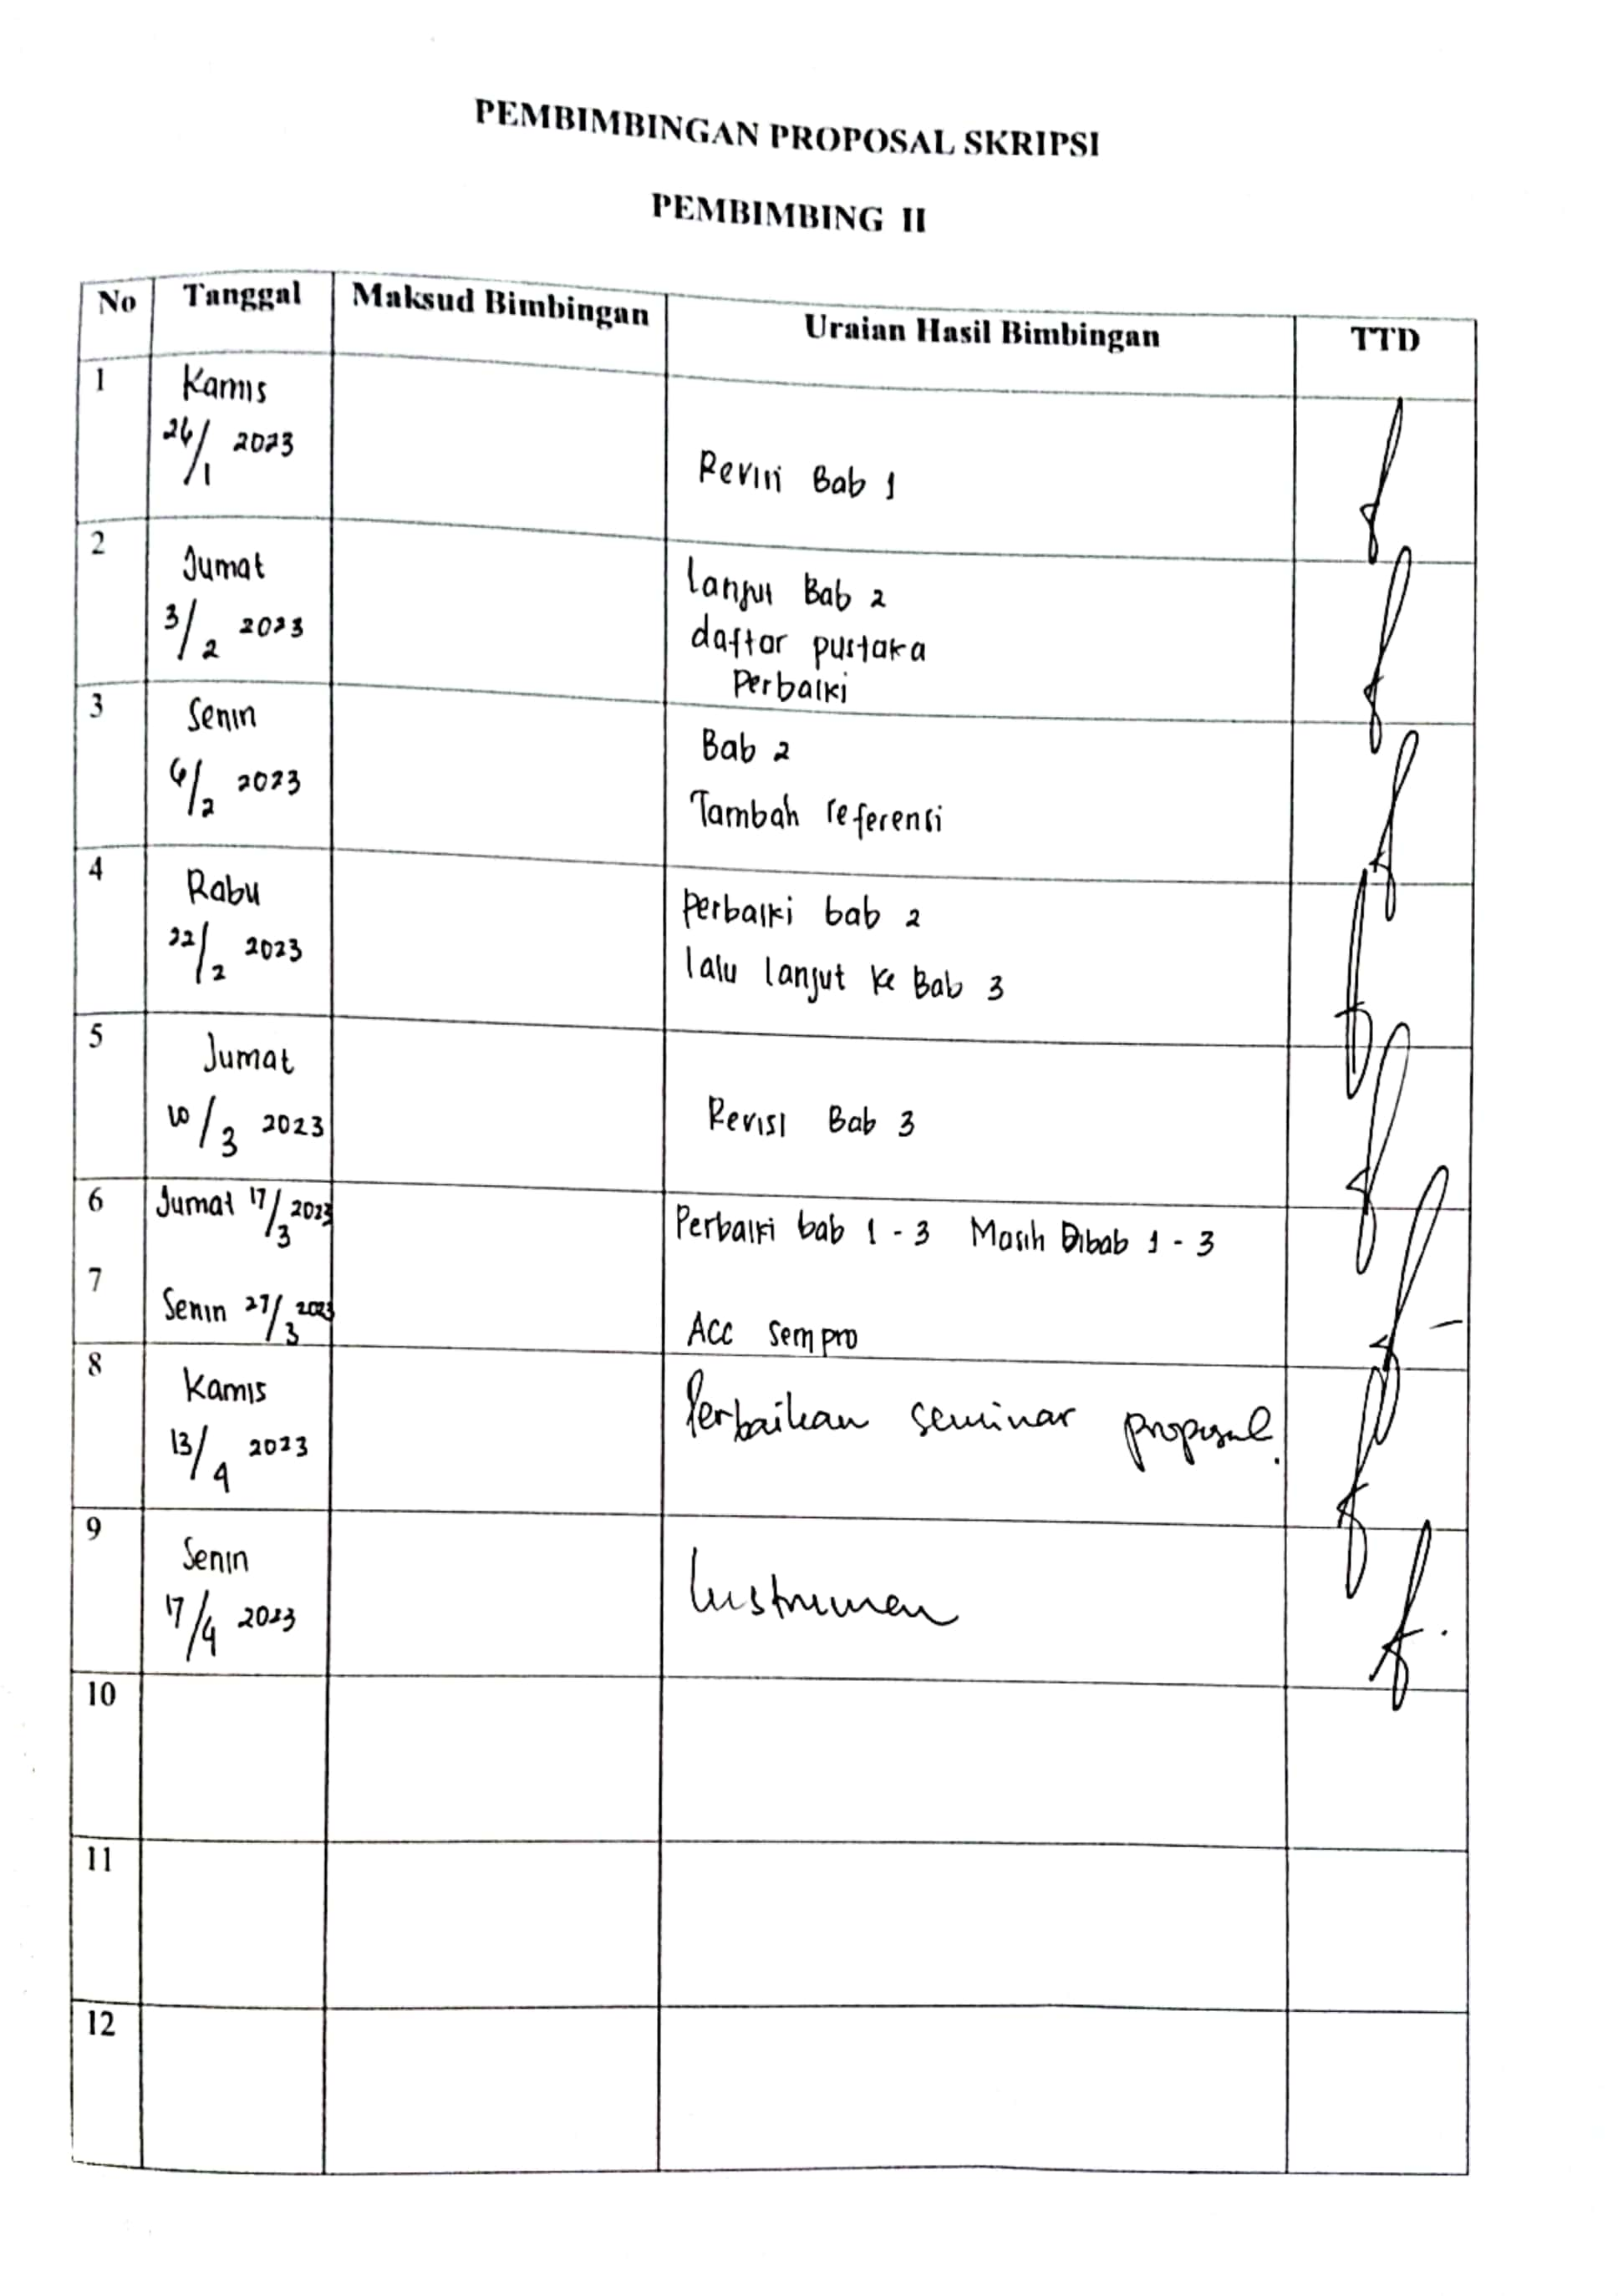 PEMBIMBINGAN PROPOSAL SKRIPSI
PEMBIMBING II
No Tanggal Maksud Bimbingan Uraian Hasil Bimbingan TTD
1 Kamis
26/1 2023 Revisi Bab 1
2 Jumat
3/2 2023
lanjut Bab 2
daftar pustaka
Perbaiki
3 Senin
6/2 2023
Bab 2
Tambah referensi
4 Rabu
22/2 2023
Perbaiki bab 2
lalu lanjut ke Bab 3
5 Jumat
10/3 2023 Revisi Bab 3
6 Jumat 17/3 2023 Perbaiki bab 1 - 3 Masih Dibab 1 - 3
7 Senin 27/3 2023 Acc sempro
8 Kamis
13/4 2023
Perbaikan seminar proposal.
9 Senin
17/4 2023
Instrumen
10
11
12